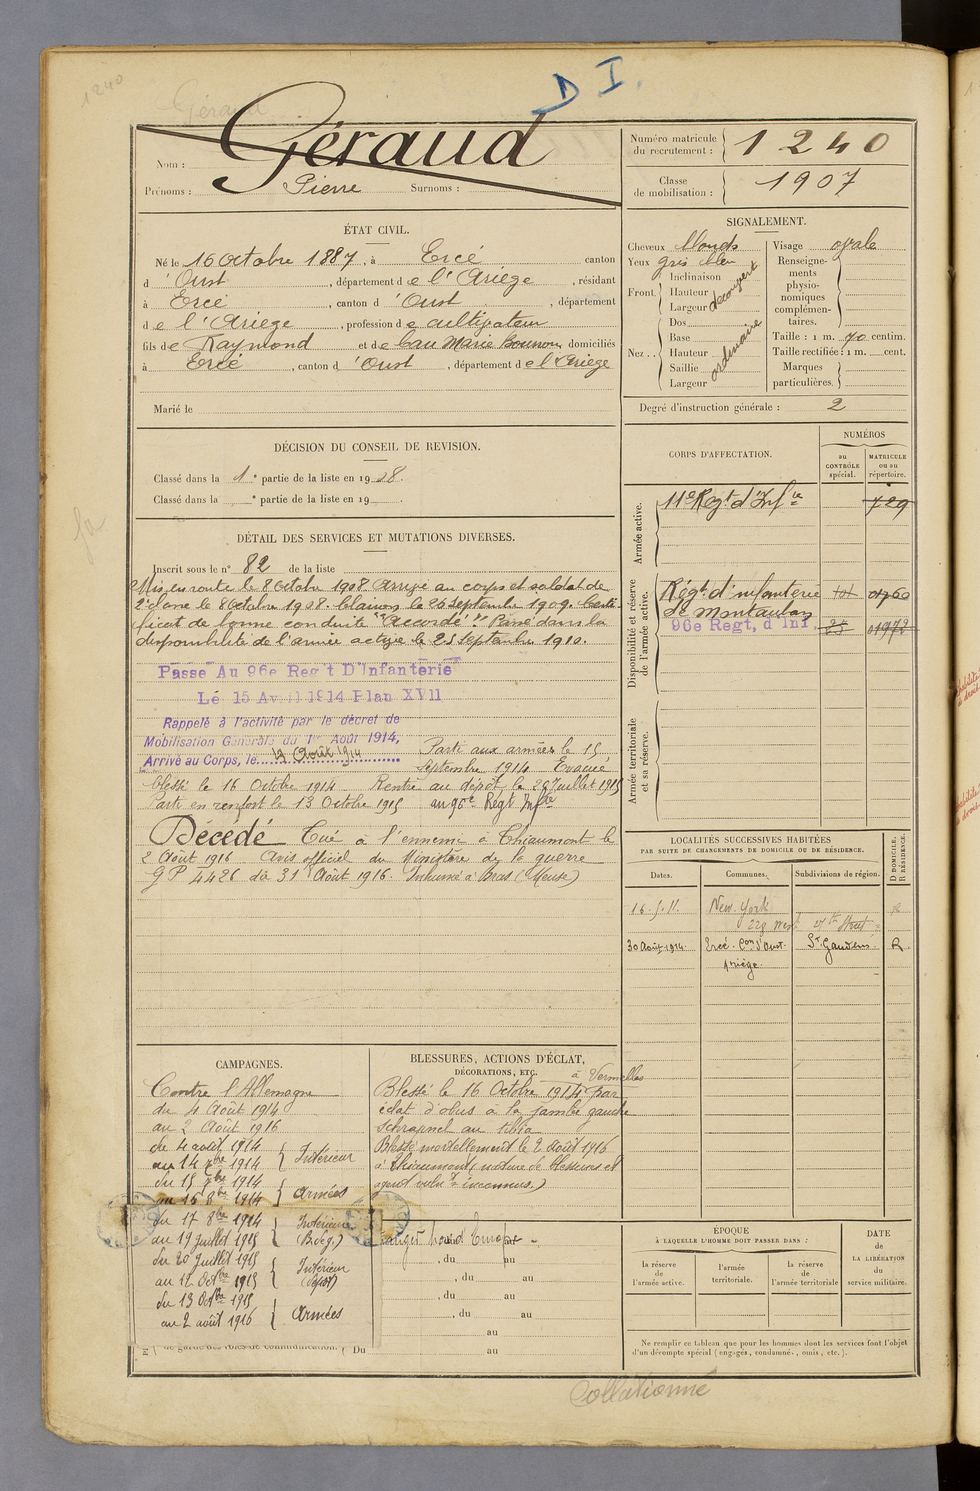 1240
Géraud
D I.
Nom : Géraud
Prénoms : Pierre Surnoms :
Numéro matricule du recrutement : 1240
Classe de mobilisation : 1907
ÉTAT CIVIL.
Né le 16 Octobre 1887, à Ercé canton
d'Oust, département de l'Ariège, résidant
à Ercé, canton d'Oust, département
de l'Ariège, profession de cultivateur
fils de Raymond et de Marie domiciliés
à Ercé, canton d'Oust, département de l'Ariège
Marié le
SIGNALEMENT.
Cheveux blonds
Yeux gris bleu
Front. Inclinaison
Hauteur
Largeur
découvert
Nez.. Dos
Base
Hauteur
Saillie
Largeur
ordinaire
Visage ovale
Renseignements physionomiques complémentaires.
Taille : 1 m. 70 centim.
Taille rectifiée : 1 m. cent.
Marques particulières.
Degré d'instruction générale : 2
DÉCISION DU CONSEIL DE REVISION.
Classé dans la 1e partie de la liste en 1908.
Classé dans la e partie de la liste en 19 .
DÉTAIL DES SERVICES ET MUTATIONS DIVERSES.
Inscrit sous le n° 82 de la liste
Mis en route le 8 Octobre 1908 Arrivé au corps et soldat de
2e classe le 8 Octobre 1908. Clairon le 25 Septembre 1909. Certi
ficat de bonne conduite "Accordé". Passé dans la
disponibilité de l'armée active le 25 septembre 1910.
Passé Au 96e Reg't D'Infanterie
Lé 15 Avril 1914 Plan XVII
Rappelé à l'activité par le décret de
Mobilisation Générale du 1er Août 1914,
Arrivé au Corps, le Août 1914 Parti aux armées le 15
Septembre 1914 Evacué
blessé le 16 Octobre 1914 Rentré au dépôt le 20 Juillet 1915
Parti en renfort le 13 Octobre 1915 au 96e Régt Inftie
Décédé Tué à l'ennemi à Thiaumont le
2 Août 1916 Avis officiel du Ministère de la guerre
G P 4426 du 31 Août 1916. Inhumé à Bras (Meuse)
CORPS D'AFFECTATION.
NUMÉROS
au CONTRÔLE spécial.
MATRICULE ou au répertoire.
Armée active.
11e Regt d'Infie 729
Disponibilité et réserve de l'armée active.
Régt d'infanterie
de Montauban
96e Regt, d'Inf.
Armée territoriale et sa réserve.
LOCALITÉS SUCCESSIVES HABITÉES
PAR SUITE DE CHANGEMENTS DE DOMICILE OU DE RÉSIDENCE.
Dates. Communes. Subdivisions de région. D DOMICILE. R RÉSIDENCE.
16.5.11. New-York R
West 27th Street
30 Août 1914. Ercé. Con d'Oust. St Gaudens. R
Ariège.
CAMPAGNES.
Contre l'Allemagne
du 4 Août 1914
au 2 Août 1916
du 4 août 1914
au 14 7bre 1914 Intérieur
du 15 7bre 1914
au 16 8bre 1914 Armées
du 17 8bre 1914
au 19 Juillet 1915 Intérieur
du 20 Juillet 1915
au 12 Octbre 1915 Intérieur (Dépôt)
du 13 Octbre 1915
au 2 août 1916 Armées
BLESSURES, ACTIONS D'ÉCLAT, DÉCORATIONS, ETC.
à Vermelles
Blessé le 16 Octobre 1914 par
éclat d'obus à la jambe gauche
schrapnel au tibia
Blessé mortellement le 2 Août 1916
à Thiaumont (nature de blessures et
agent vulnt inconnus.)
hors d'Europe
, du au
, du au
, du au
, du au
au
de garde des voies de communication. Du au
ÉPOQUE
À LAQUELLE L'HOMME DOIT PASSER DANS :
la réserve de l'armée active.
l'armée territoriale.
la réserve de l'armée territoriale
DATE de LA LIBÉRATION du service militaire.
Ne remplir ce tableau que pour les hommes dont les services font l'objet
d'un décompte spécial (engagés, condamnés, omis, etc.).
Collationné